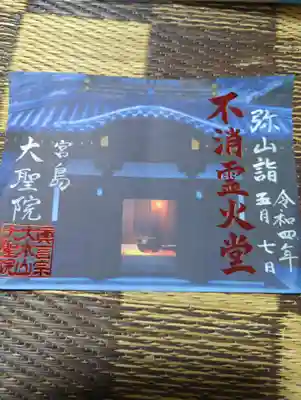 弥山詣
令和四年
五月七日
不消霊火堂
宮島
大聖院